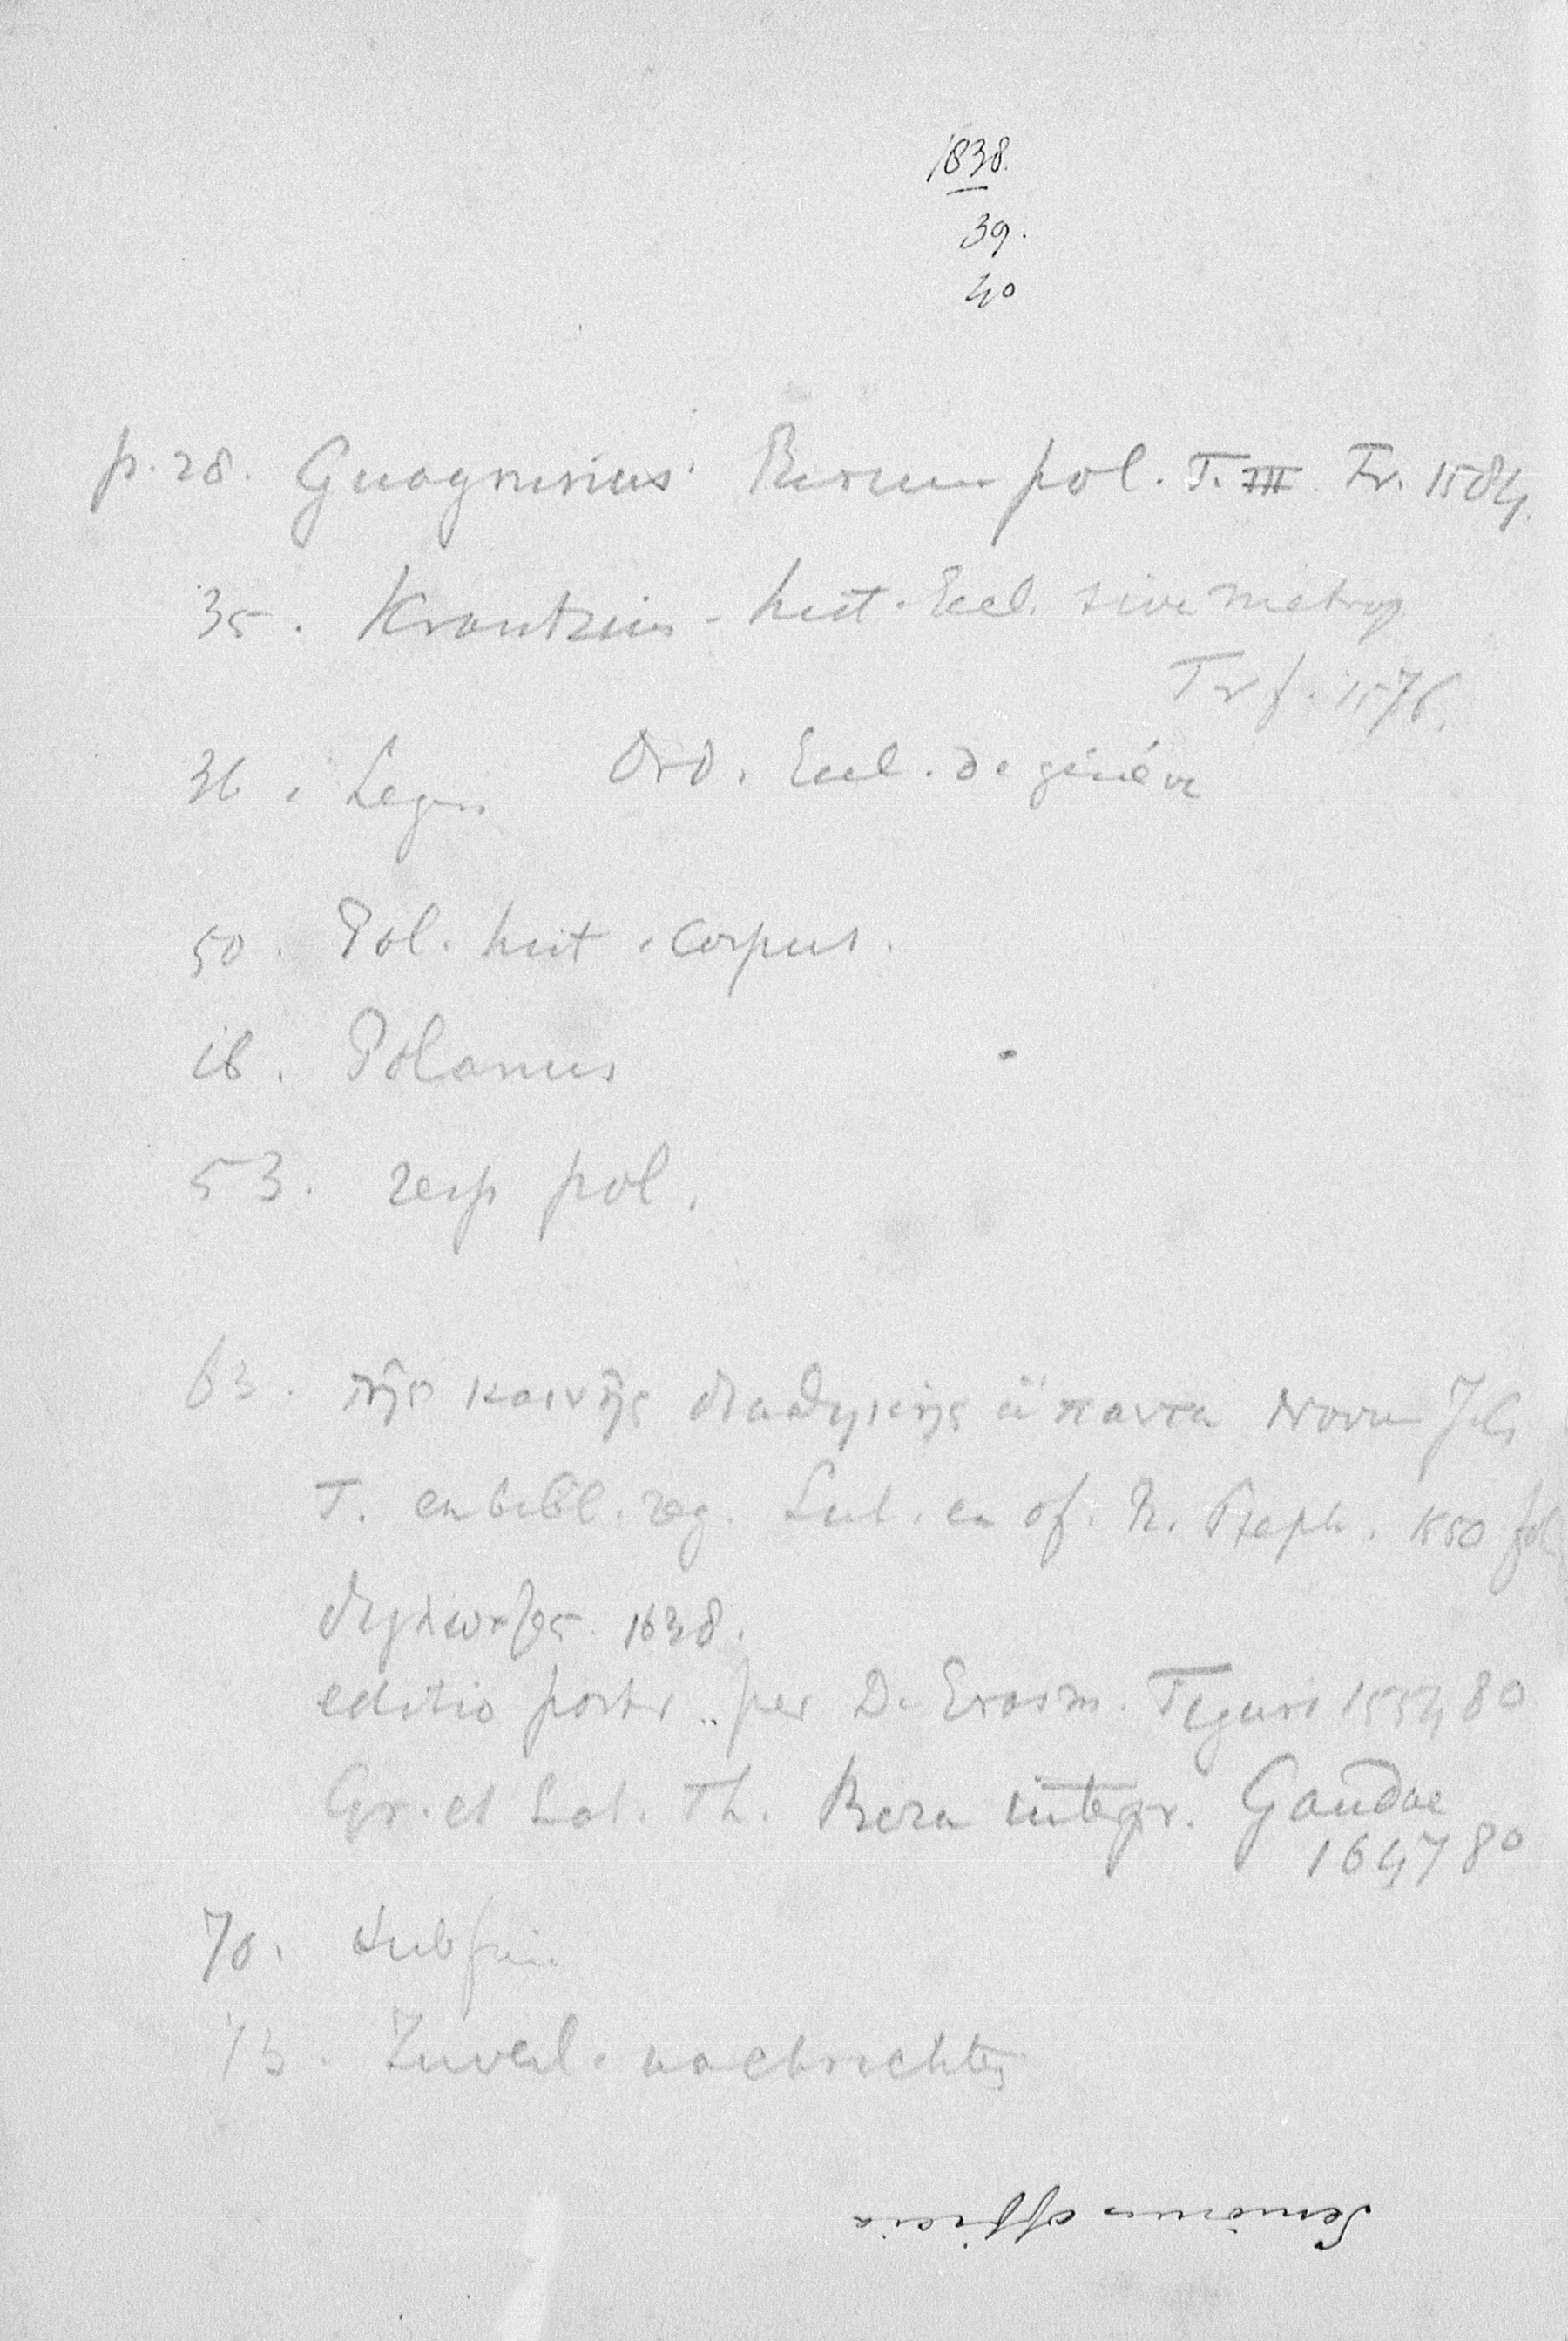 1838.
39.
40
p. 28. Guagninius Rerum pol. T. III Fr. 1584.
35. Krantzius - hist. Eccl. sive metrop
Frf. 1576.
36. Leges Ord. Eccl. de genéve
50. Pol. hist. Corpus.
ib. Polanus
53. resp pol.
63. τῆς καινῆς διαθήκης ἅπαντα Novum
T. ex bibl. reg. Lut. ex of. R. Steph. 1550 fol
1638.
editio postr. per D. Erasm. Tiguri 1554 80
Gr. et Lat. Th. Beza integr. Goudae
1647 80
70.
73. Zuverl. nachrichten
Seniorum officia